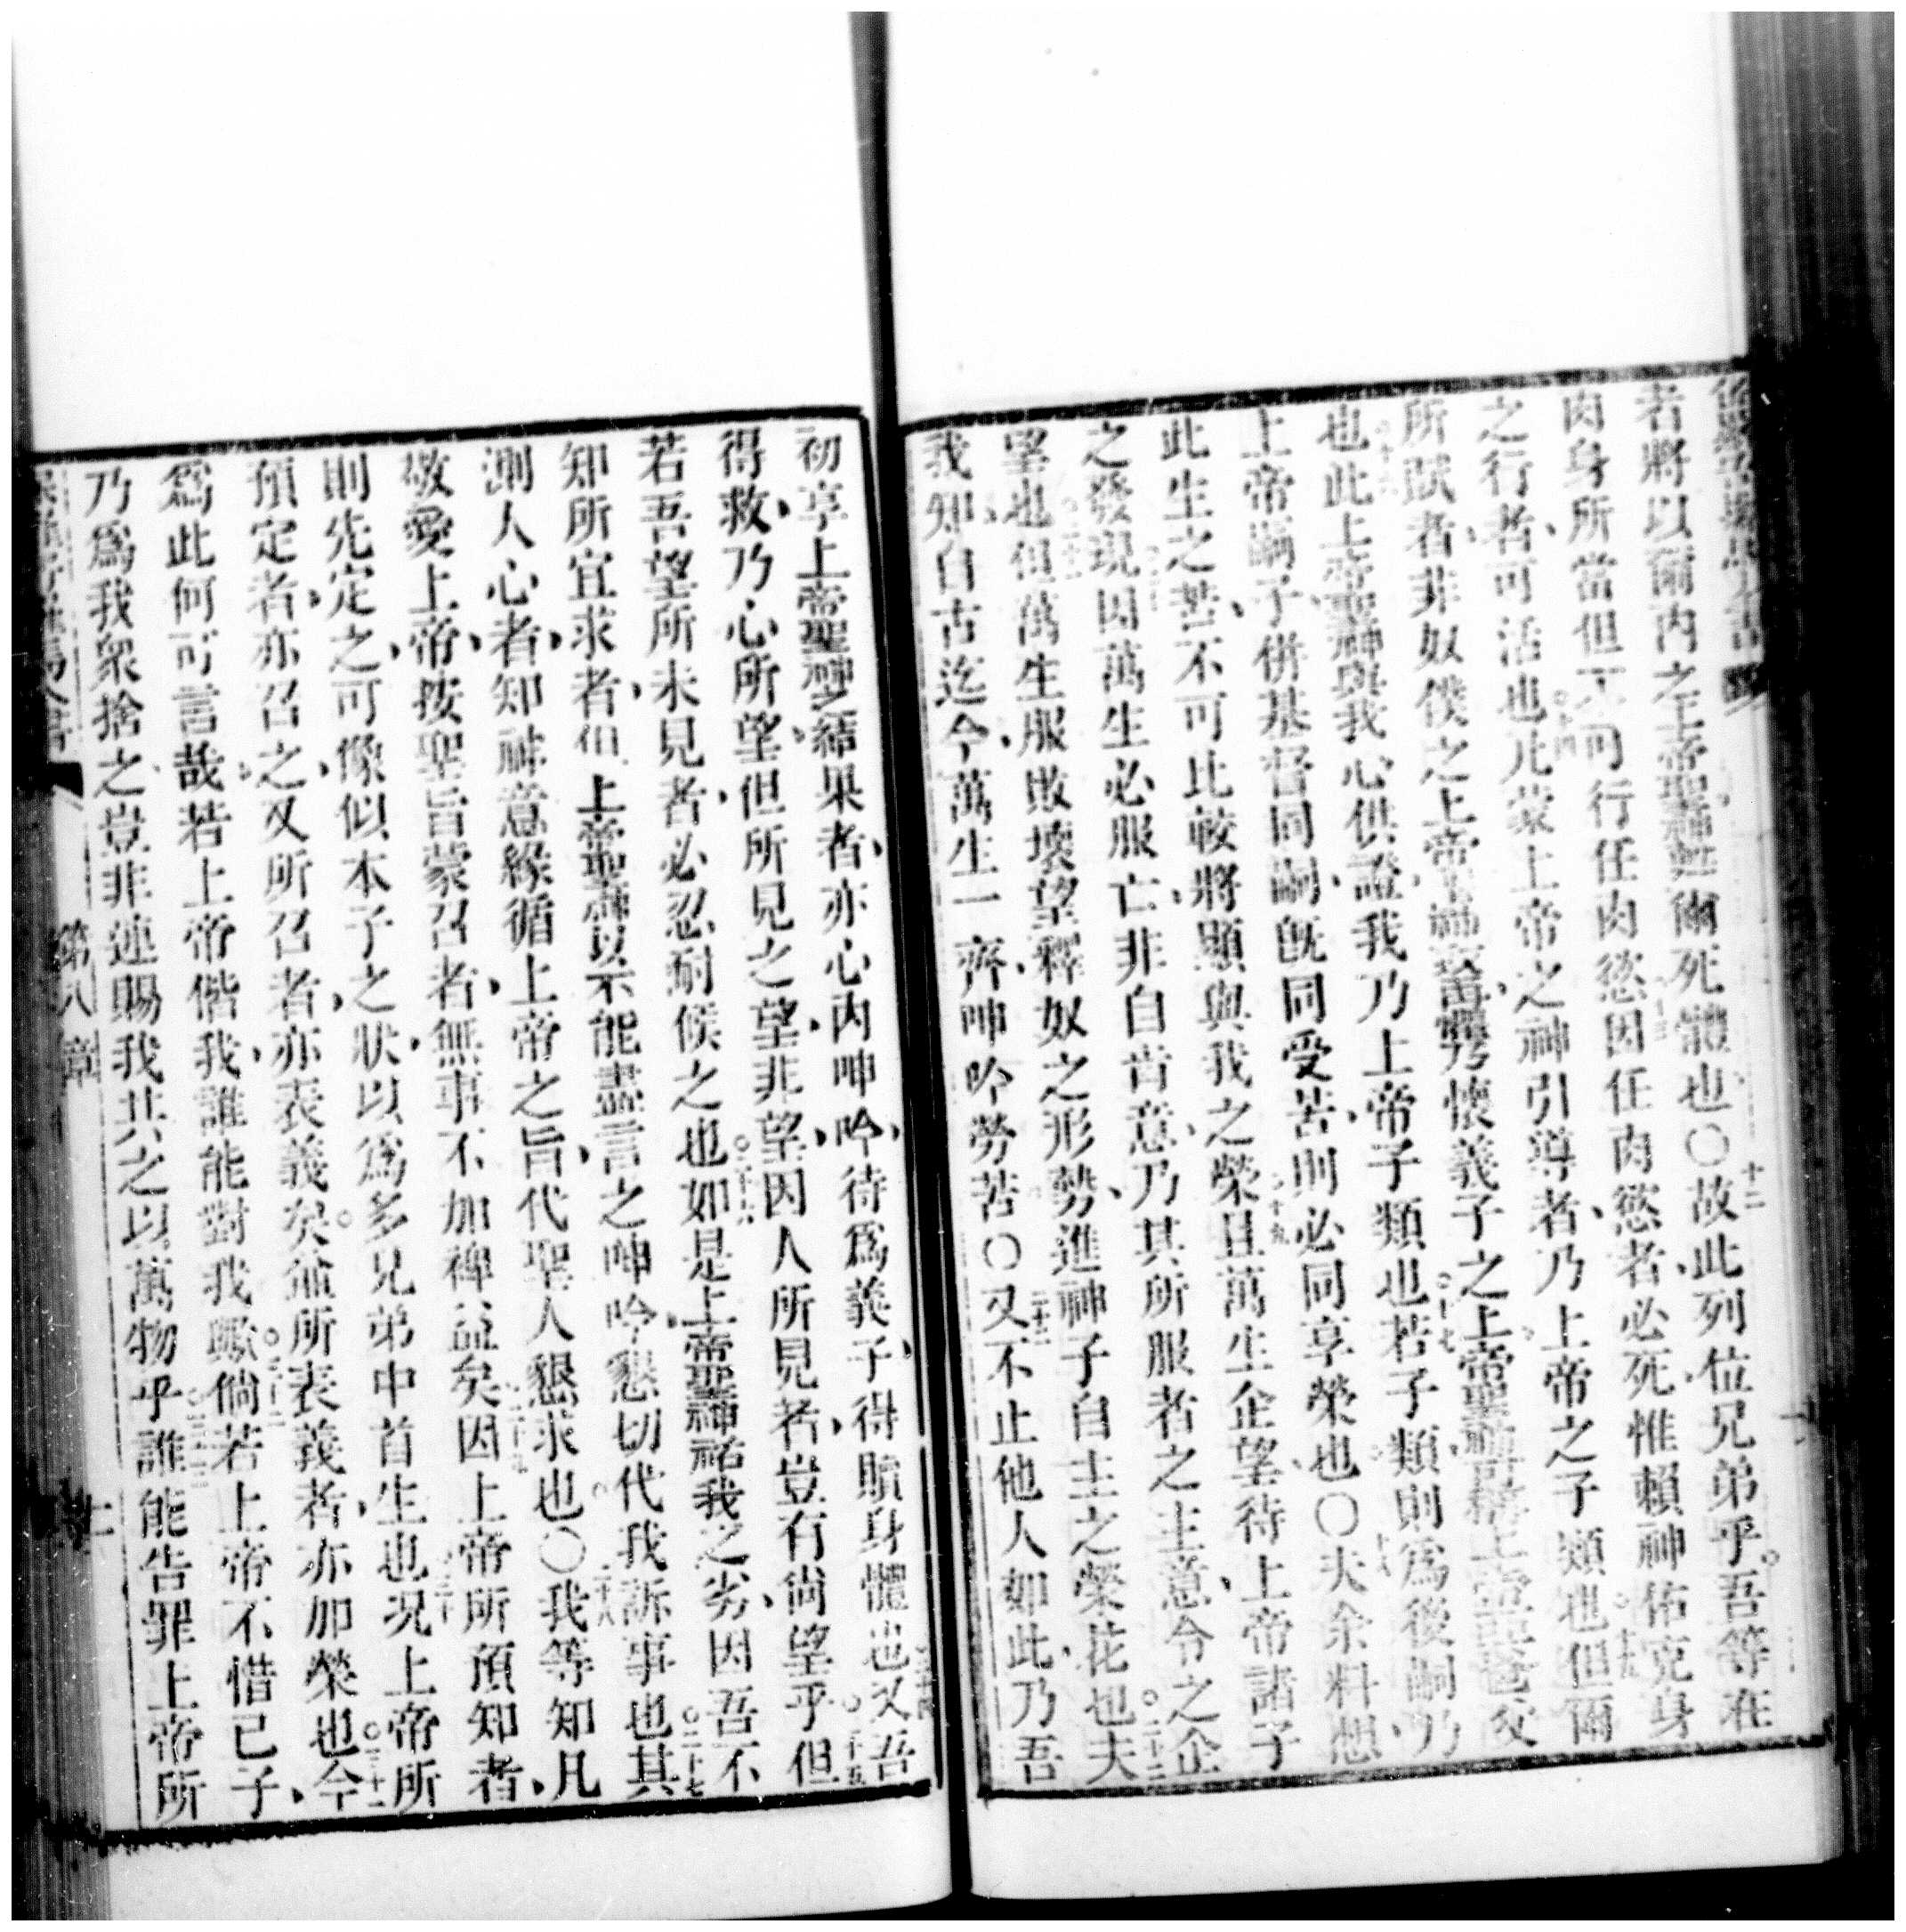 者將以爾內之上帝聖神甦爾死體也〇十二故此列位兄弟乎吾等在
肉身所當但不可行任肉慾因任肉慾者必死惟賴神佑克身
之行者可活也凡蒙上帝之神引導者乃上帝之子類也但爾
所賦者非奴僕之上帝懷義子之上帝聖神可稱上帝爺父
也此上帝聖神與我心供證我乃上帝子類也十七若子類則為後嗣乃
上帝嗣子併基督同嗣旣同受苦則必同享榮也〇夫余料想
此生之苦不可比較將顯與我之榮十九且萬生企望待上帝諸子
之發現因萬生必服亡非自肯意乃其所服者之主意令之企
望也但萬生服敗壞望釋奴之形勢進神子自主之榮花也二十二夫
我知自古迄今萬生一齊呻吟勞苦〇二十三又不止他人如此乃吾
初享上帝聖神之結果者亦心內呻吟待為義子得贖身體也二十四又吾
得救乃心所望但所見之望非望因人所見者豈有尚望乎二十五但
若吾望所未見者必忍耐候之也二十六如是上帝聖神祐我之劣因吾不
知所宜求者但上帝聖神以不能盡言之呻吟懇切代我訴事也二十七其
測人心者知神意緣循上帝之旨代聖人懇求也〇二十八我等知凡
敬愛上帝按聖旨蒙召者無事不加裨益矣二十九因上帝所預知者
則先定之可像似本子之狀以為多兄弟中首生也三十況上帝所
預定者亦召之又所召者亦表義矣並所表義者亦加榮也三十一今
為此何可言哉若上帝偕我誰能對我歟三十二倘若上帝不惜已子
乃為我眾捨之豈非連賜我共之以萬物乎三十三誰能告罪上帝所
第八章